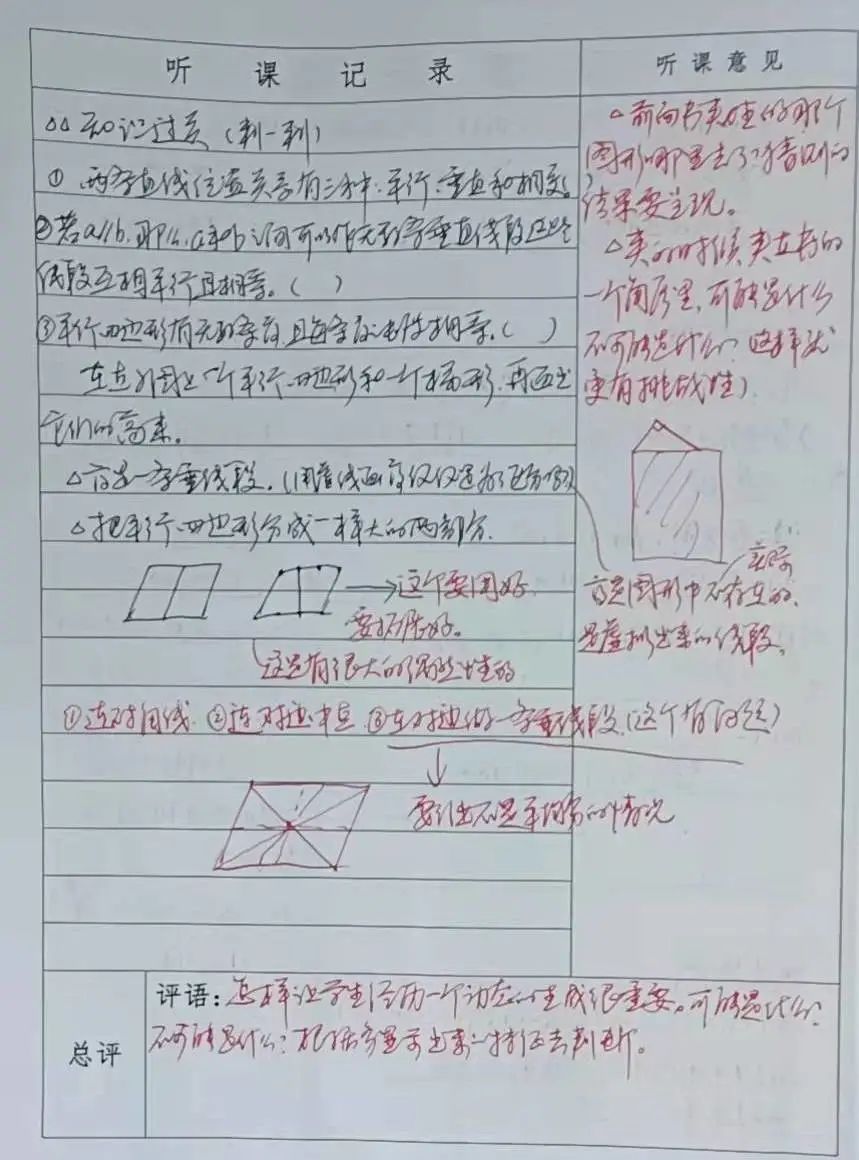 听课记录
△△ 知识过关（判一判）
① 两条直线位置关系有三种：平行、垂直和相交。
②若a∥b，那么，a和b之间可以作无数条垂直线段这些
线段互相平行且相等。（ ）
③平行四边形有无数条高，且每条高都相等。（ ）
一个平行四边形和一个梯形，再画出
它们的高来。
△高是一条垂线段。
△把平行四边形分成一样大的两部分。
→这个要用好，
要好。
这是有很大的的
①连对角线 ②连对边中点 ③在对边作一条垂线段（这个有问题）
↓
要引出不是平均分的情况
听课意见
△前面书夹住的那个
图形哪里去了？猜测的
结果要呈现。
△夹的时候，夹立着的
一个角度里，可能是什么
不可能是什么？这样就
更有挑战性）
实际
高是图形中不存在的，
是虚拟出来的线段。
总评
评语：怎样让学生经历一个动态的生成很重要。可能是什么？
不可能是什么？根据露出来的特征去判断。